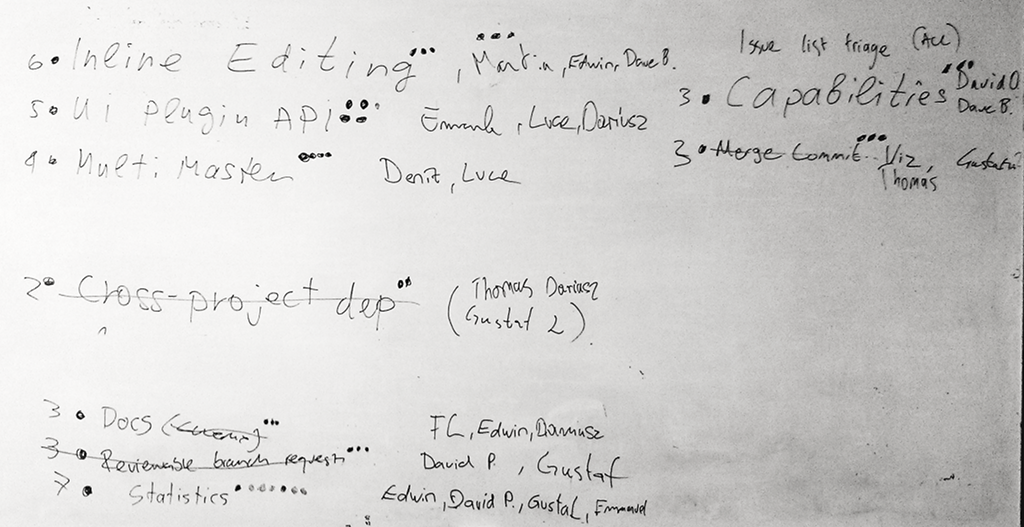 6 • Inline Editing ••• , Martin, Edwin, Dave B.
5 • Ui Plugin API Emanuele, Luca, Dariusz
4 • Multi Master •••• Deniz, Luca
Issue list triage (ALL)
3 • Capabilities David O.
Dave B.
3 • Merge Commit Viz, Gustaf
Thomas
2 • Cross-project dep •• (Thomas Dariusz
Gustaf L)
3 • Docs ••• FC, Edwin, Dariusz
3 • Reviewable branch request ••• David P., Gustaf
7 • Statistics ••••••• Edwin, David P., Gustaf, Emanuel